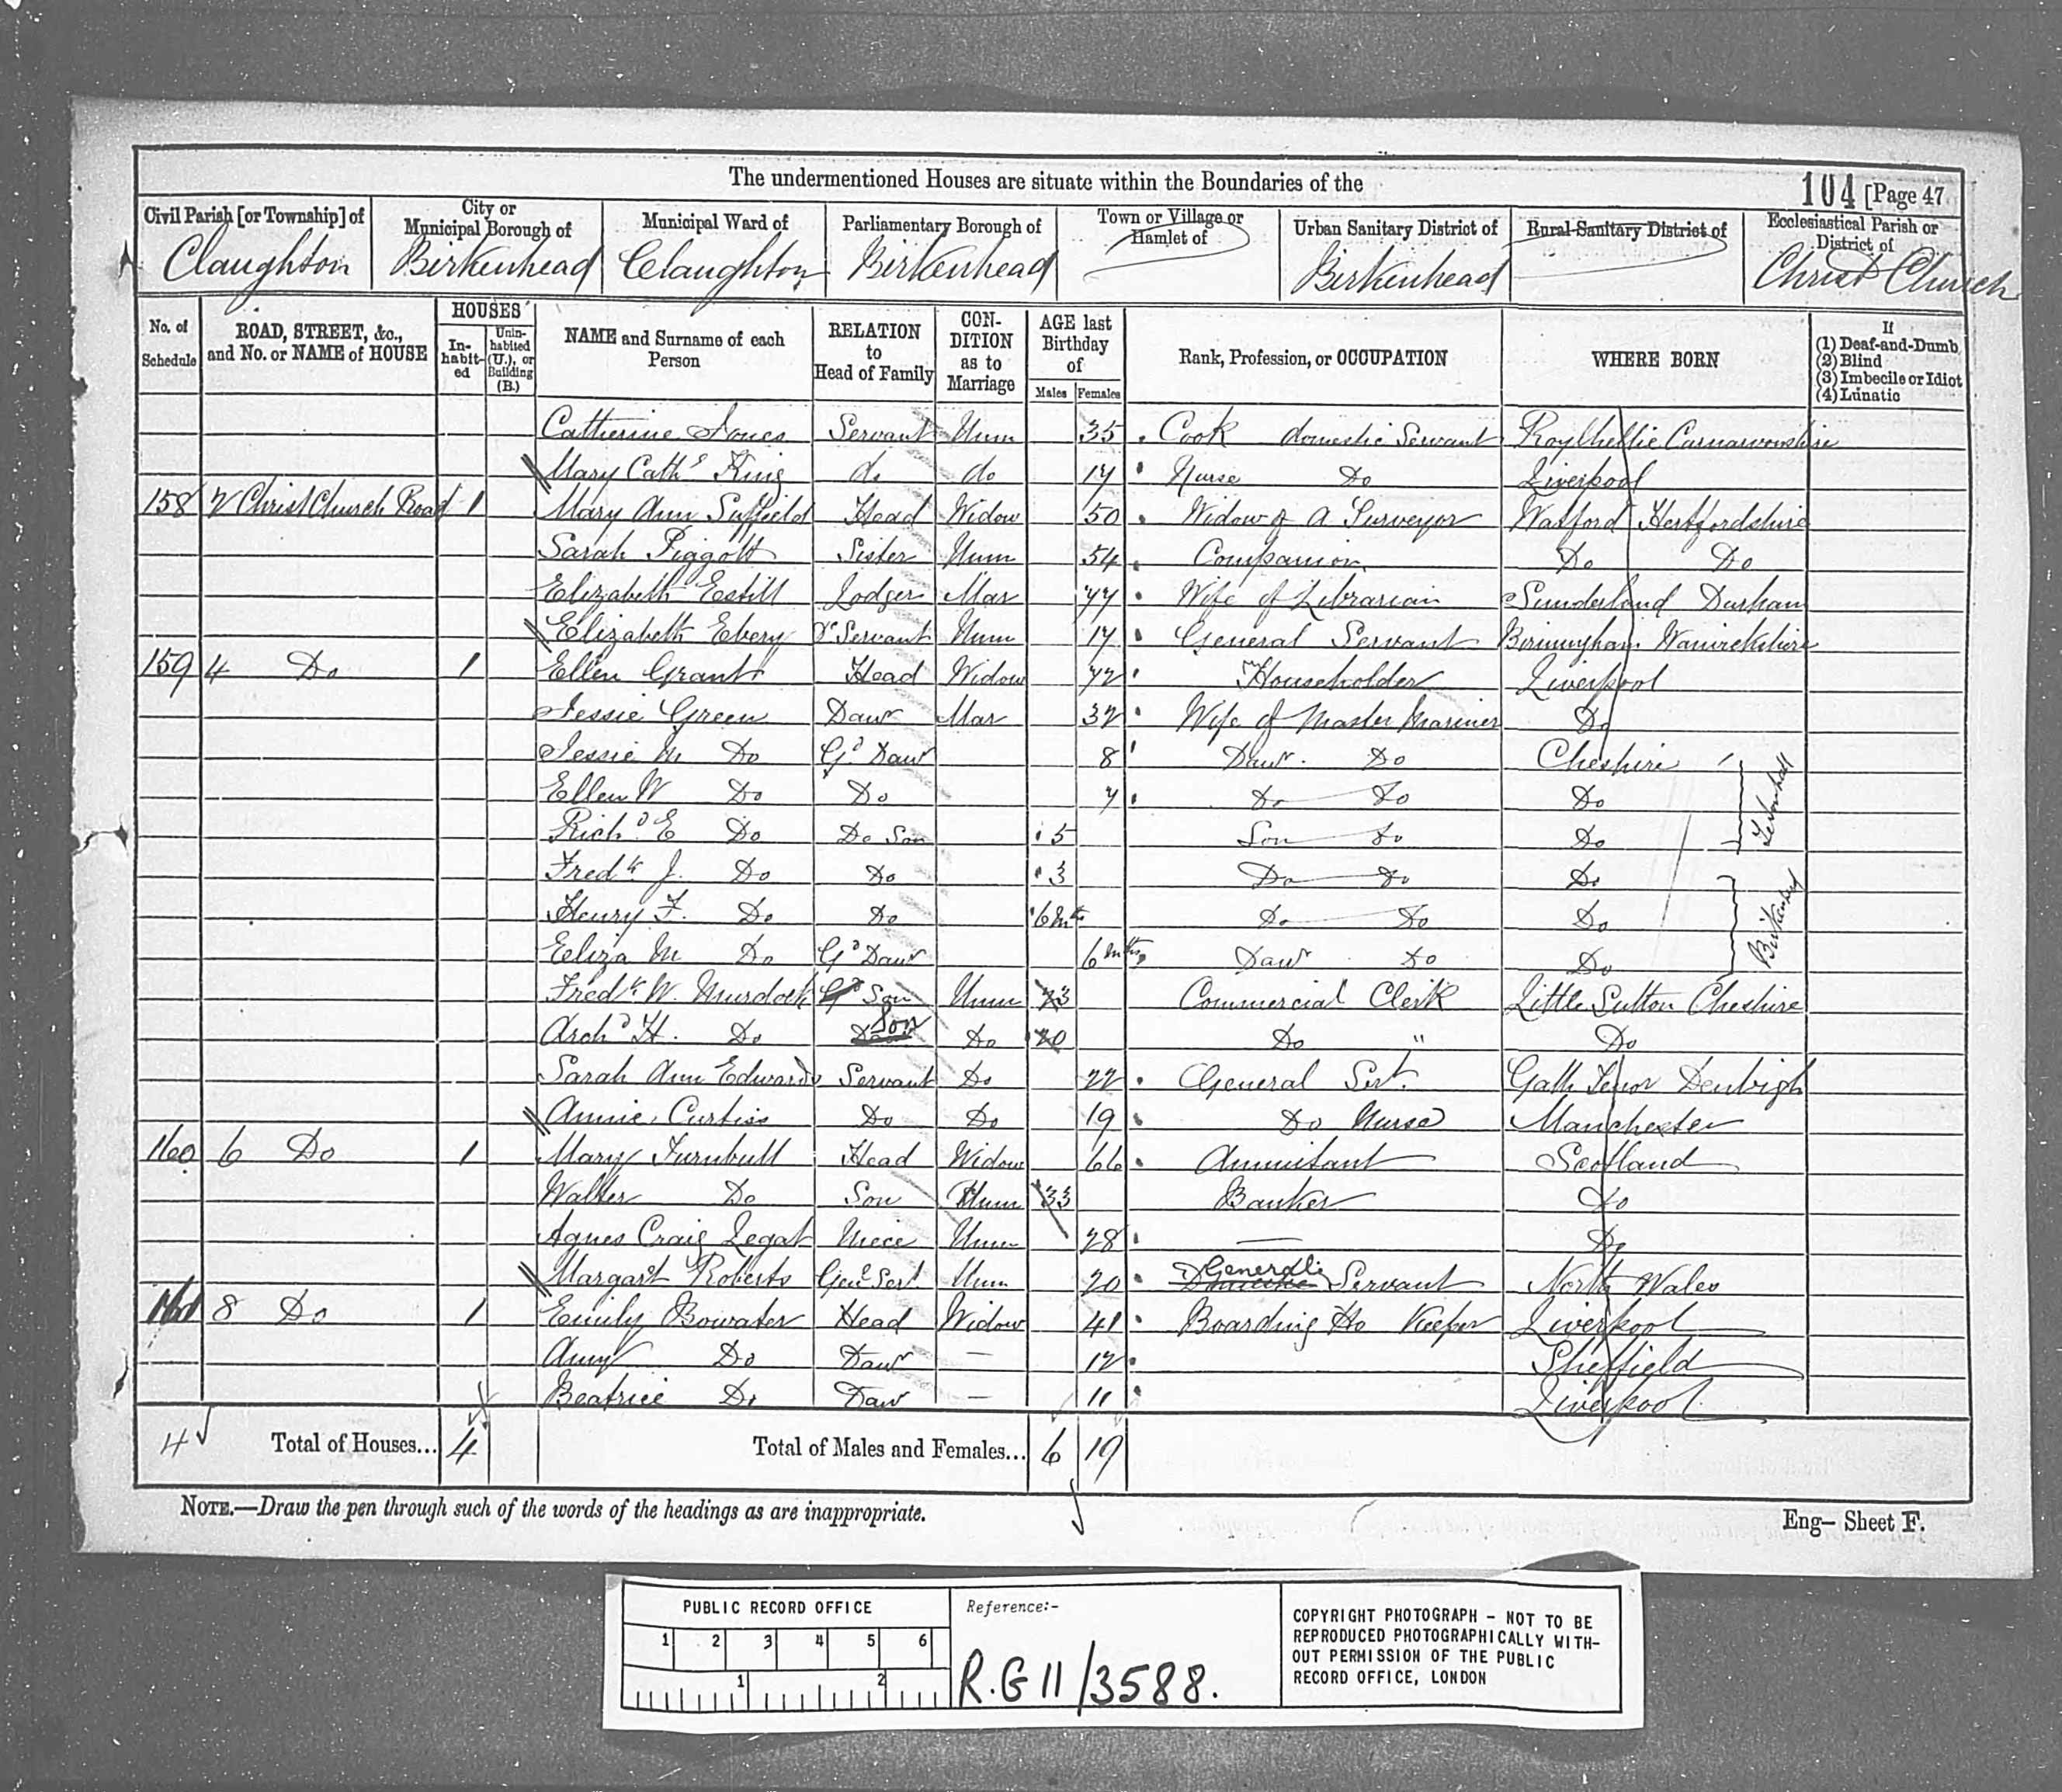 The undermentioned Houses are situate within the Boundaries of the
104 [Page 47
Civil Parish [or Township] of Claughton
City or Municipal Borough of Birkenhead
Municipal Ward of Claughton
Parliamentary Borough of Birkenhead
Town or Village or Hamlet of
Urban Sanitary District of Birkenhead
Rural Sanitary District of
Ecclesiastical Parish or District of Christ Church
No. of Schedule
ROAD, STREET, &c., and No. or NAME of HOUSE
HOUSES
In-habit-ed
Unin-habited (U.), or Building (B.)
NAME and Surname of each Person
RELATION to Head of Family
CON-DITION as to Marriage
AGE last Birthday of
Males Females
Rank, Profession, or OCCUPATION
WHERE BORN
If (1) Deaf-and-Dumb (2) Blind (3) Imbecile or Idiot (4) Lunatic
Catherine Jones Servant Unm 35 Cook domestic Servant Carnarvonshire
Mary Cathe King do do 17 Nurse Do Liverpool
158 2 Christ Church Road 1 Mary Ann Suffield Head Widow 50 Widow of a Surveyor Watford Hertfordshire
Sarah Piggott Sister Unm 54 Companion Do Do
Elizabeth Estill Lodger Mar 77 Wife of Librarian Sunderland Durham
Elizabeth Ebery Servant Unm 17 General Servant Birmingham Warwickshire
159 4 Do 1 Ellen Grant Head Widow 72 Householder Liverpool
Jessie Green Daur Mar 32 Wife of Master Mariner Do
Jessie M Do Gd Daur 8 Daur. Do Cheshire
Ellen W Do Do 7 Do Do Do
Richd E Do Do Son 5 Son Do Do
Fredk J. Do Do 3 Do Do Do
Henry F. Do Do 6 Mts Do Do Do
Eliza M Do Gd Daur 6 mths Daur Do Do
Birkenhead
Fredk W. Murdock Gd Son Unm 23 Commercial Clerk Little Sutton Cheshire
Archd H. Do Son Do 20 Do " Do
Sarah Ann Edwards Servant Do 22 General Sert. Denbigh
Annie Curtiss Do Do 19 Do Nurse Manchester
160 6 Do 1 Mary Turnbull Head Widow 66 Annuitant Scotland
Walter Do Son Unm 33 Banker Do
Agnes Craig Legat Niece Unm 28 — Do
Margart Roberts Genl Sert Unm 20 General Servant North Wales
161 8 Do 1 Emily Bowater Head Widow 41 Boarding Ho Keeper Liverpool
Amy Do Daur — 12 Sheffield
Beatrice Do Daur — 11 Liverpool
4 Total of Houses... 4 Total of Males and Females... 6 19
NOTE.—Draw the pen through such of the words of the headings as are inappropriate.
Eng— Sheet F.
PUBLIC RECORD OFFICE
1 2 3 4 5 6
1 2
Reference:-
R.G 11/3588.
COPYRIGHT PHOTOGRAPH - NOT TO BE
REPRODUCED PHOTOGRAPHICALLY WITH-
OUT PERMISSION OF THE PUBLIC
RECORD OFFICE, LONDON